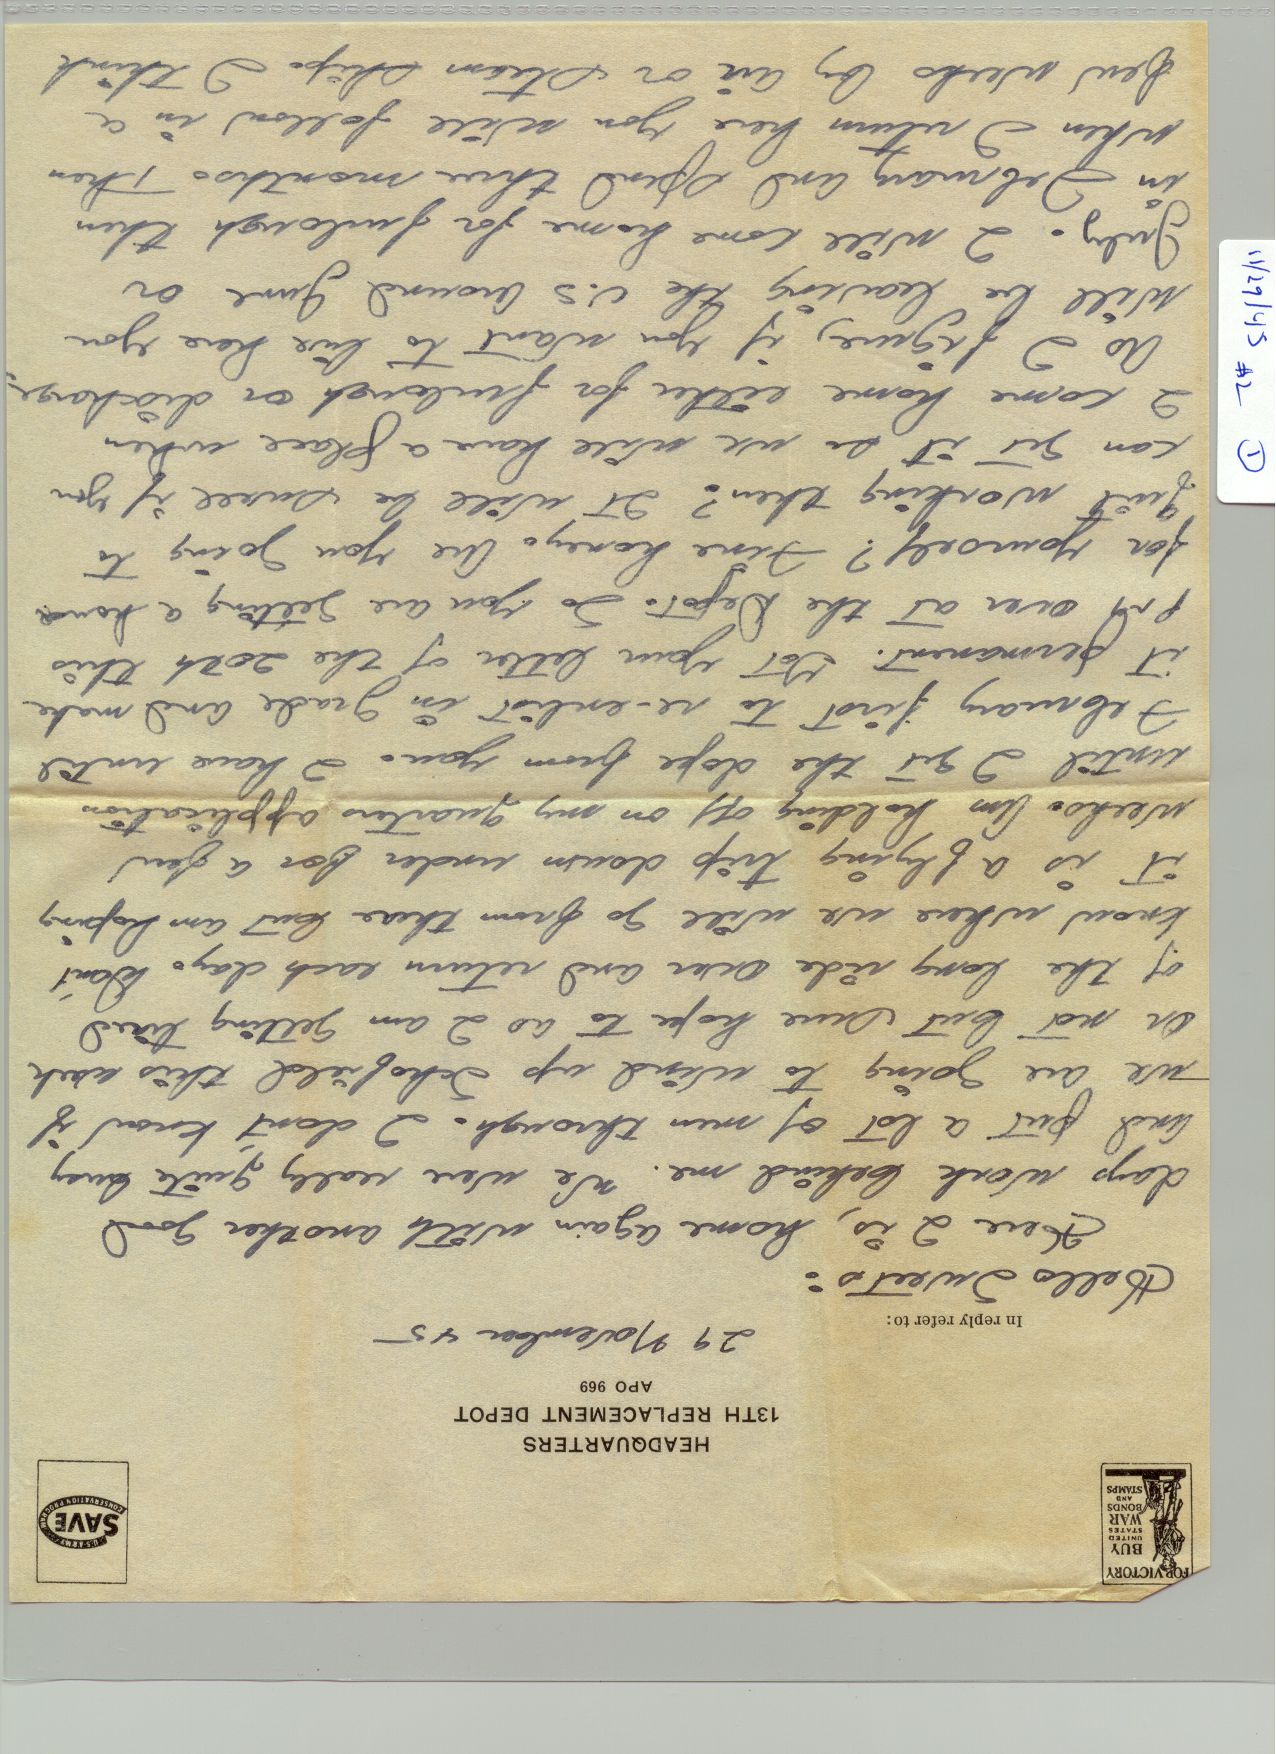 FOR VICTORY
BUY
UNITED
STATES
WAR
BONDS
AND
STAMPS
U·S·ARMY
SAVE
CONSERVATION PROGRAM
HEADQUARTERS
13TH REPLACEMENT DEPOT
APO 969
29 November 45
In reply refer to:
Hello Sweets:
Here I is, home again with another good
days work behind me. We were really quite busy
and put a lot of men through. I don't know if
we are going to wind up Schofield this week
or not but sure hope to as I am getting tired
of the long ride over and return each day. Don't
know where we will go from thear but am hoping
it is a flying trip down under for a few
weeks. Am holding off on my quarters application
until I get the dope from you. I have until
February first to re-enlist in grade and make
it permanent. Got your letter of the 20th this
p m over at the Depot. So you are getting a home
for yourself? Fine honey. Are you going to
quit working then? It will be swell if you
can get it so we will have a place when
I come home either for furlough or discharge.
As I figure, if you want to live here you
will be leaving the U.S around June or
July. I will come home for furlough then
in February and spend three months. Then
when I return here you will follow in a
few weeks by air or steam ship. I think
11/29/45 #2 1